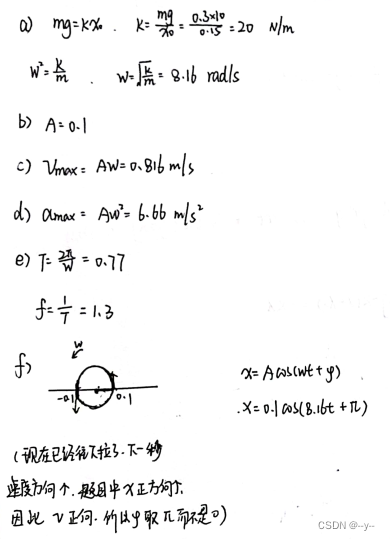 a) mg=kx₀. k=mg/x₀=0.3×10/0.15=20 N/m
W²=k/m . W=√(k/m)=8.16 rad/s
b) A=0.1
c) Vmax= AW=0.816 m/s
d) amax= AW²=6.66 m/s²
e) T=2π/W=0.77
f=1/T=1.3
f) W
-0.1 0.1
x=Acos(wt+φ)
.x=0.1cos(8.16t+π)
(现在已经往下拉了.下一秒
速度方向↑.题目中x正方向↑.
因此 v正向.所以φ取π而不是0)
CSDN @--y--